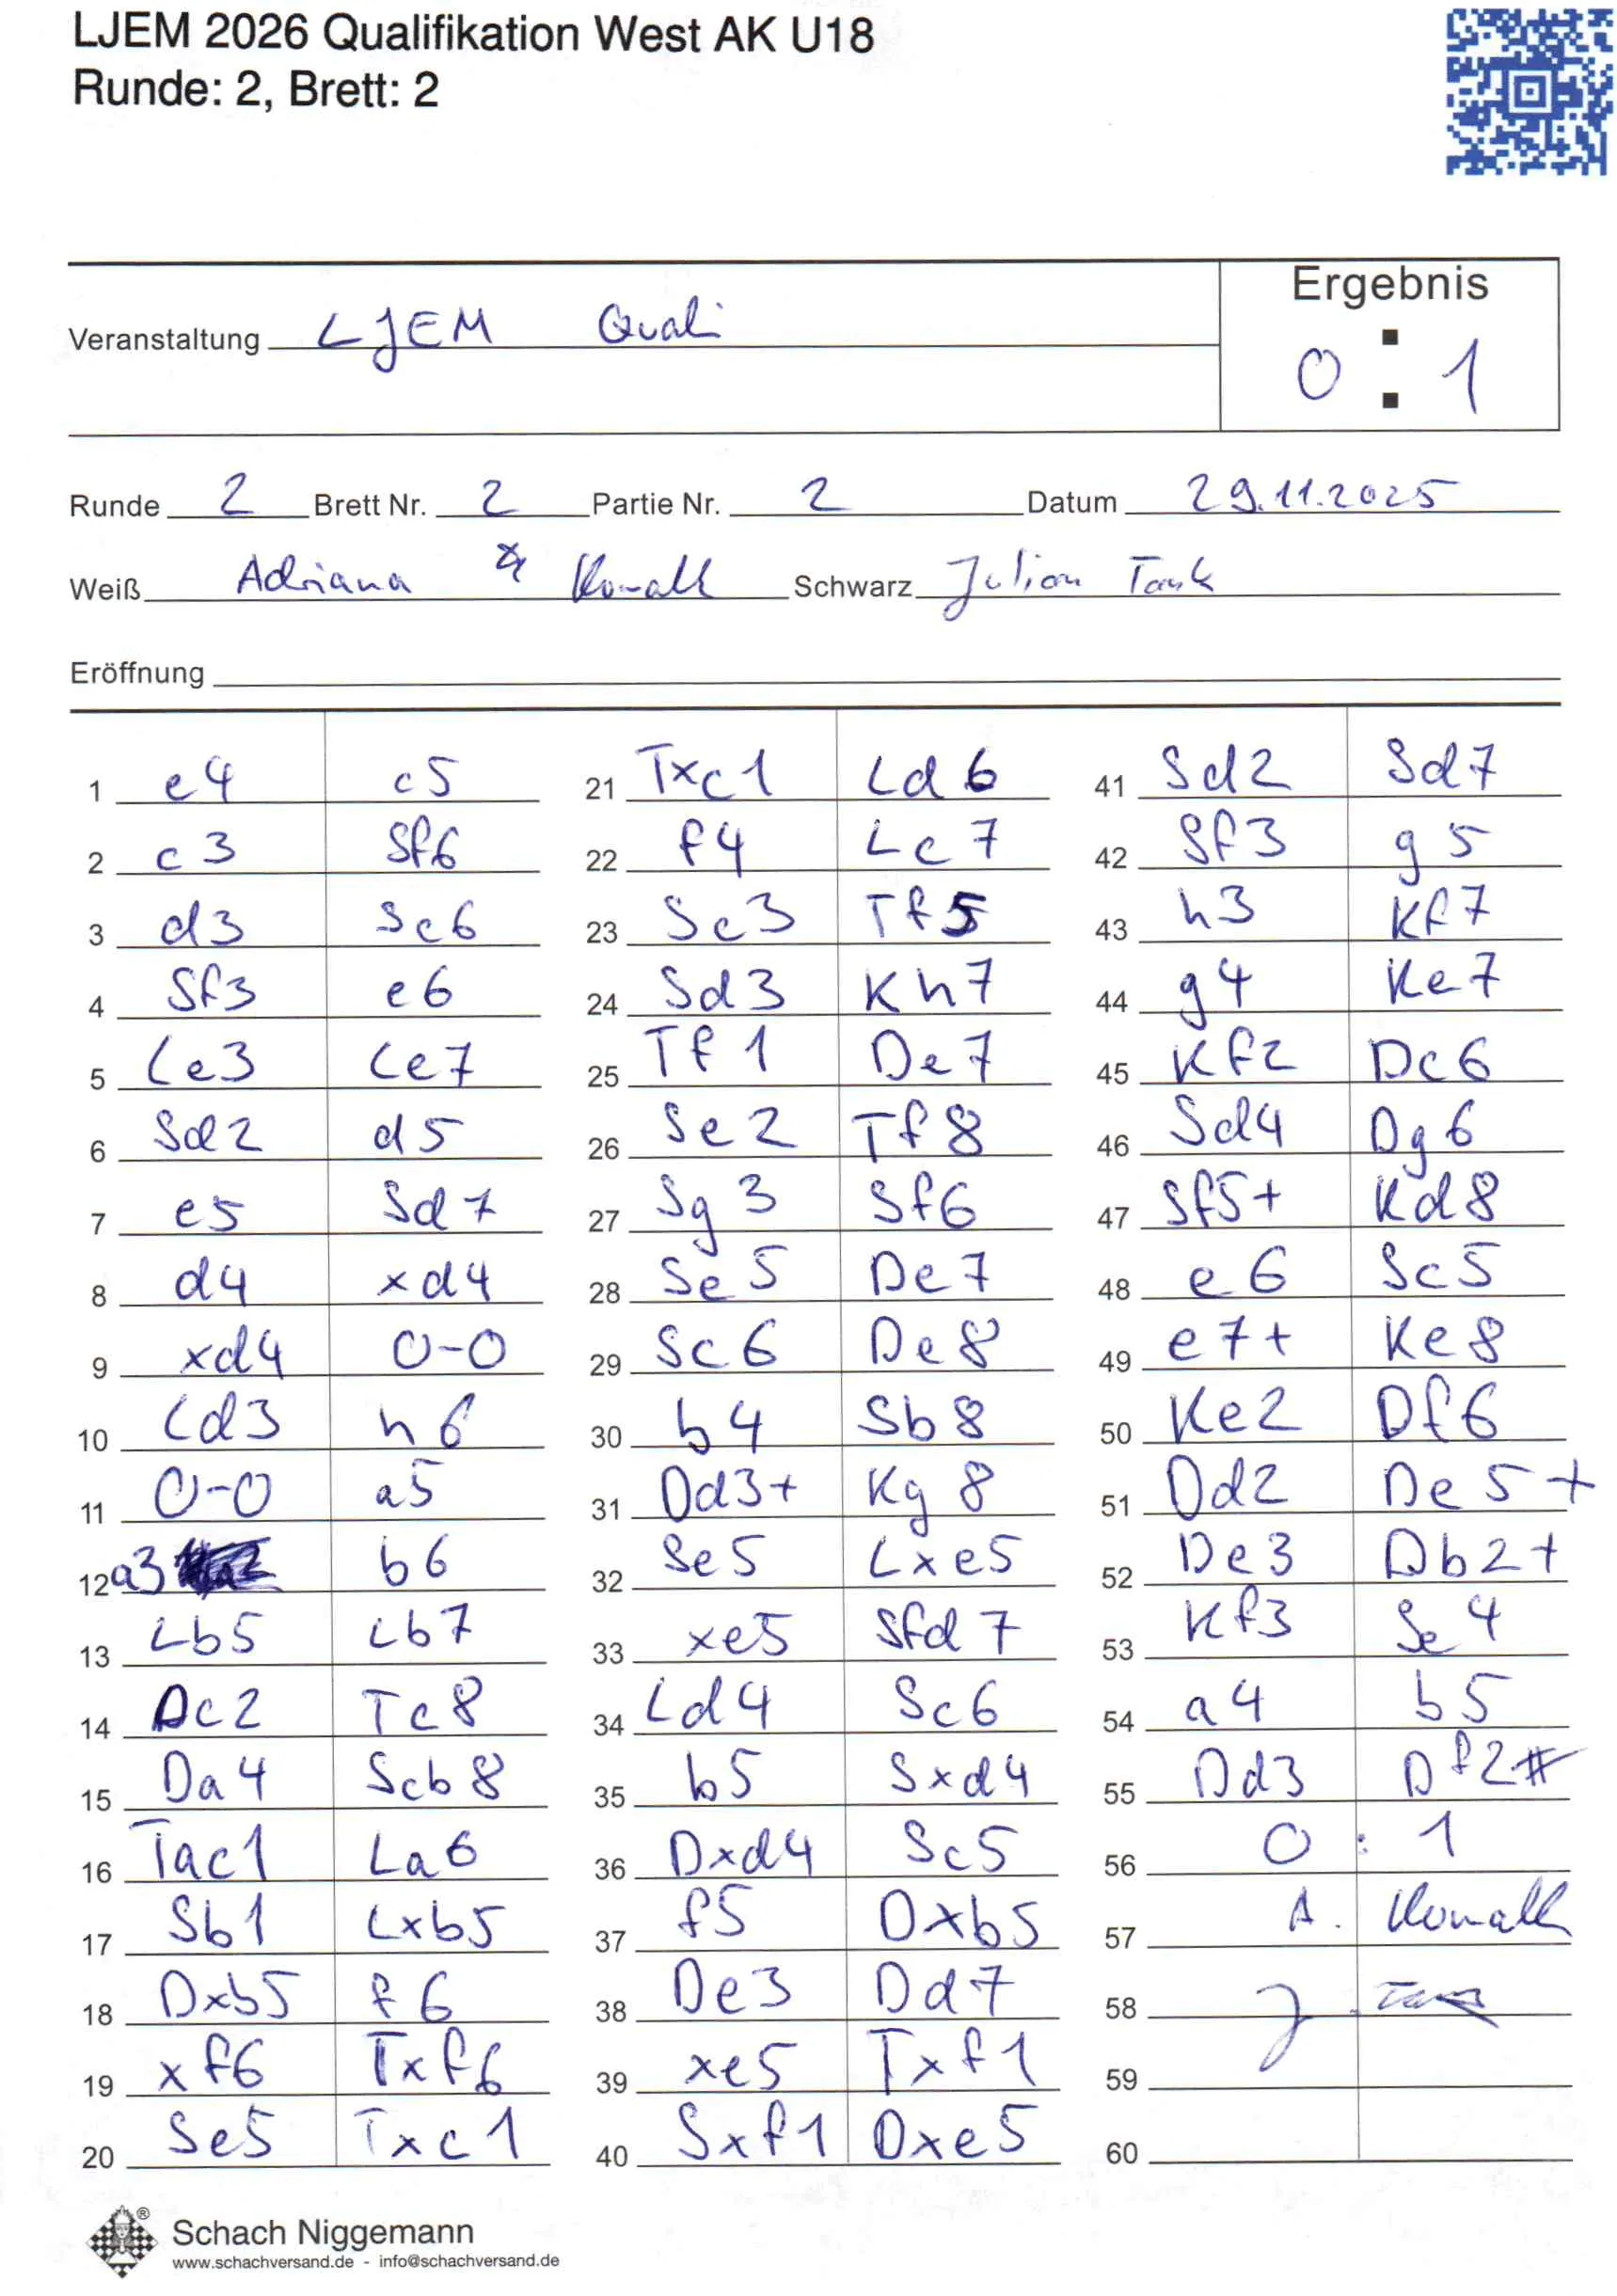 LJEM 2026 Qualifikation West AK U18
Runde: 2, Brett: 2
Ergebnis
Veranstaltung LJEM Quali
0 : 1
Runde 2 Brett Nr. 2 Partie Nr. 2 Datum 29.11.2025
Weiß Adriana Kowall Schwarz Julian Tank
Eröffnung
1 e4 c5 21 Txc1 Ld6 41 Sd2 Sd7
2 c3 Sf6 22 f4 Lc7 42 Sf3 g5
3 d3 Sc6 23 Sc3 Tf5 43 h3 Kf7
4 Sf3 e6 24 Sd3 Kh7 44 g4 Ke7
5 Le3 Le7 25 Tf1 De7 45 Kf2 Dc6
6 Sd2 d5 26 Se2 Tf8 46 Sd4 Dg6
7 e5 Sd7 27 Sg3 Sf6 47 Sf5+ Kd8
8 d4 xd4 28 Se5 De7 48 e6 Sc5
9 xd4 0-0 29 Sc6 De8 49 e7+ Ke8
10 Ld3 h6 30 b4 Sb8 50 Ke2 Df6
11 0-0 a5 31 Dd3+ Kg8 51 Dd2 De5+
12 a3 b6 32 Se5 Lxe5 52 De3 Db2+
13 Lb5 Lb7 33 xe5 Sfd7 53 Kf3 Se4
14 Dc2 Tc8 34 Ld4 Sc6 54 a4 b5
15 Da4 Scb8 35 b5 Sxd4 55 Dd3 Df2#
16 Tac1 La6 36 Dxd4 Sc5 56 0 : 1
17 Sb1 Lxb5 37 f5 Dxb5 57 A. Kowall
18 Dxb5 f6 38 De3 Dd7 58 J. Tank
19 xf6 Txf6 39 xe5 Txf1 59
20 Se5 Txc1 40 Sxf1 Dxe5 60
Schach Niggemann
www.schachversand.de - info@schachversand.de